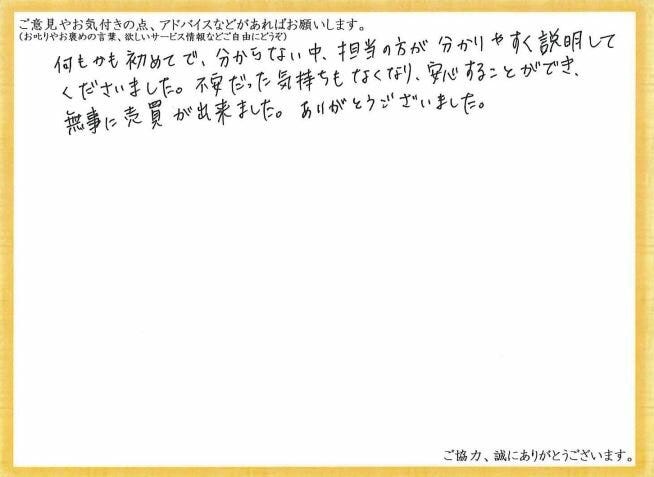 ご意見やお気付きの点、アドバイスなどがあればお願いします。
(お叱りやお褒めの言葉、欲しいサービス情報などご自由にどうぞ)
何もかも初めてで、分からない中、担当の方が分かりやすく説明して
くださいました。不安だった気持ちもなくなり、安心することができ、
無事に売買が出来ました。ありがとうございました。
ご協力、誠にありがとうございます。